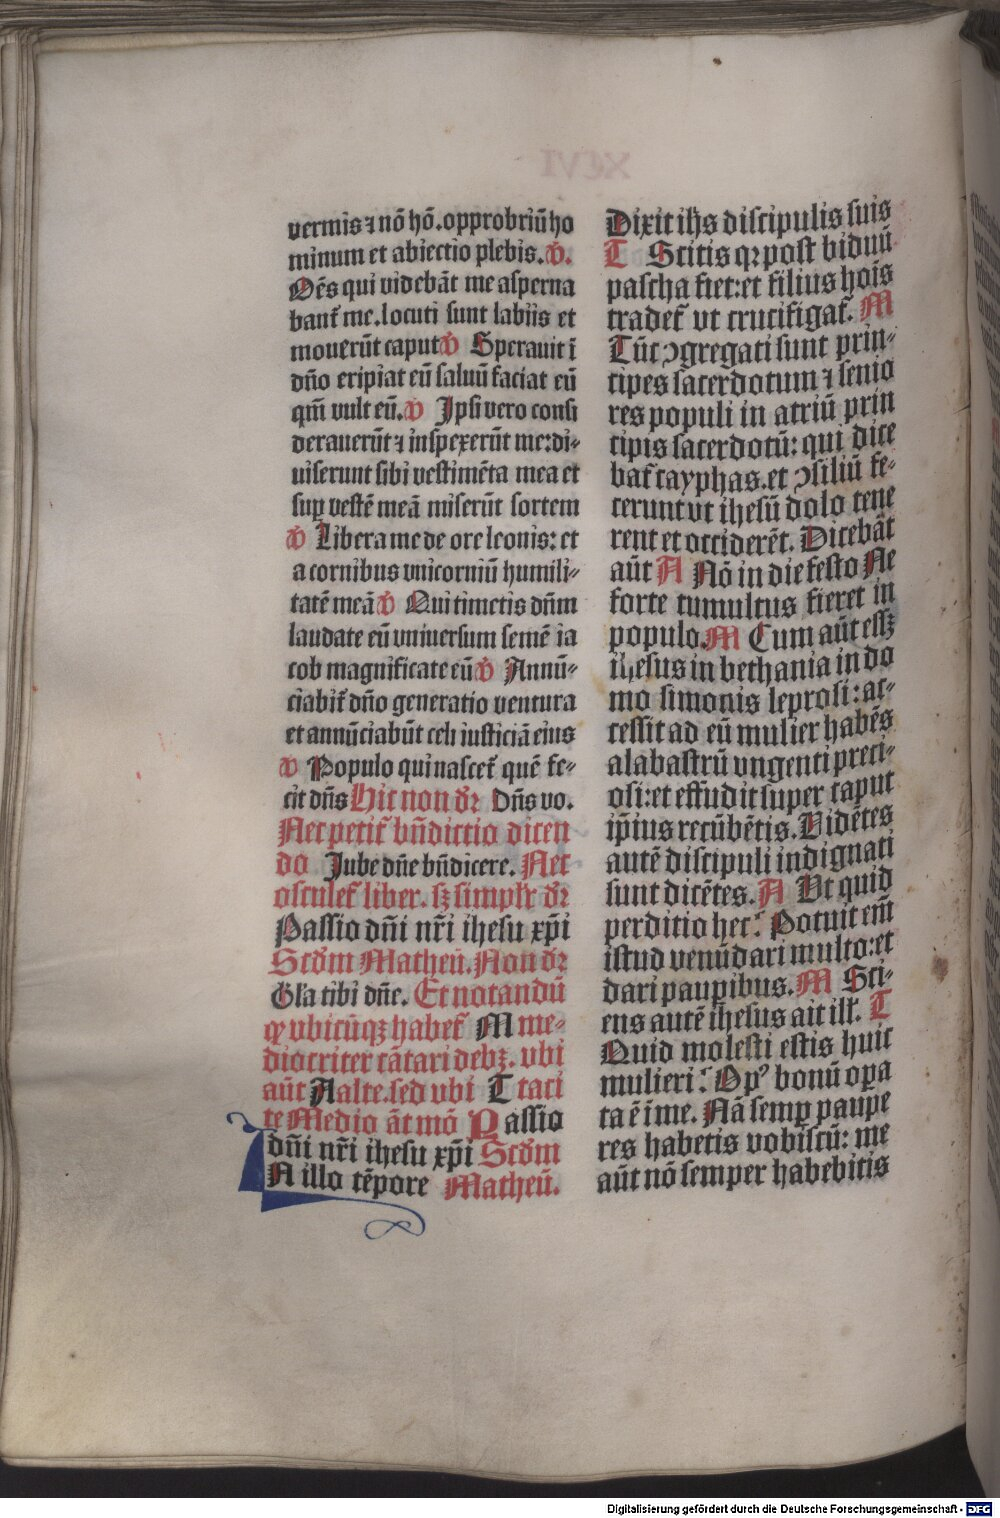 vermis ⁊ nō hō. opprobriū ho
minum et abiectio plebis. V̄.
Om̄s qui videbāt me asperna
banť me. locuti sunt labiis et
mouerūt caput V̄ Sperauit ī
dño eripiat eū saluū faciat eū
qm̄ vult eū. V̄ Ipsi vero consi
derauerūt ⁊ inspexerūt me: di-
uiserunt sibi vestimēta mea et
suꝑ vestē meā miserūt sortem
V̄ Libera me de ore leonis: et
a cornibus vnicorniū humili-
tatē meā V̄ Qui timetis dñm
laudate eū vniuersum semē ia
cob magnificate eū V̄ Annū-
ciabiť dño generatio ventura
et annūciabūt celi iusticiā eius
V̄ Populo qui nasceť quē fe-
cit dñs Hic non dꝛ Dñs vo.
Nec petiť bñdictio dicen
do Jube dñe bñdicere. Nec
osculeť liber. sꝫ simplr̄ dꝛ
Passio dñi nr̄i ihesu xp̄i
Scdm̄ Matheū. Non dꝛ
Gl̄a tibi dñe. Et notandū
ꝙ vbicūqꝫ habeť M me-
diocriter cātari debꝫ. vbi
aūt A alte. sed vbi T taci
te Medio āt mō Passio
dñi nr̄i ihesu xp̄i Scdm̄
IN illo tēpore Matheū.
Dixit ihs discipulis suis
T Scitis qꝛ post biduū
pascha fiet: et filius hoīs
tradeť vt crucifigať. M
Tūc ꝯgregati sunt prin-
cipes sacerdotum ⁊ senio
res populi in atriū prin
cipis sacerdotū: qui dice
bať cayphas. et ꝯsiliū fe-
cerunt vt ihesū dolo tene
rent et occiderēt. Dicebāt
aūt A Nō in die festo Ne
forte tumultus fieret in
populo. M Cum aūt essꝫ
ihesus in bethania in do
mo simonis leprosi: ac-
cessit ad eū mulier habēs
alabastrū vngenti preci-
osi: et effudit super caput
ip̄ius recūbētis. Vidētes
autē discipuli indignati
sunt dicētes. A Vt quid
perditio hec? Potuit em̄
istud venūdari multo: et
dari pauꝑibus. M Sci-
ens autē ihesus ait ill'. T
Quid molesti estis huic
mulieri? Opꝰ bonū oꝑa
ta ē ī me. Nā semꝑ paupe
res habetis vobiscū: me
aūt nō semper habebitis
Digitalisierung gefördert durch die Deutsche Forschungsgemeinschaft - DFG